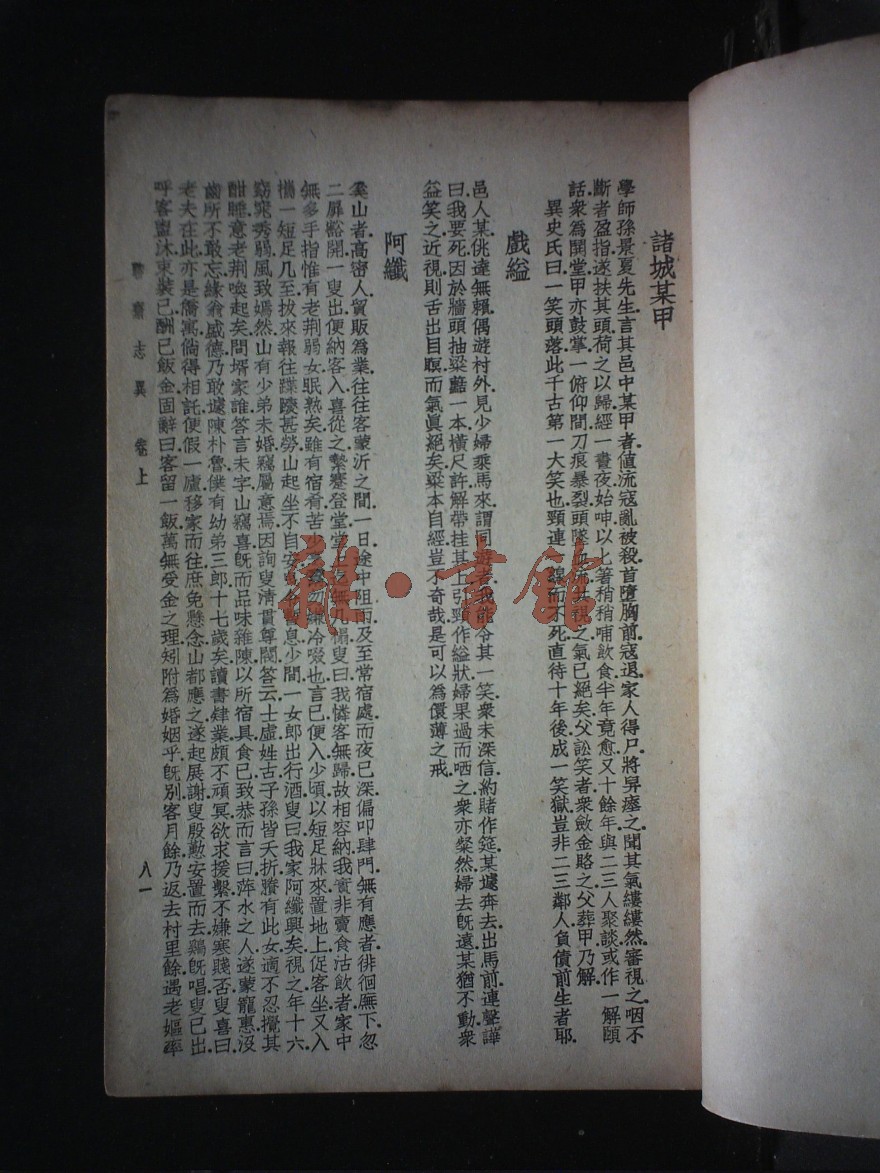 諸城某甲
學師孫景夏先生.言其邑中某甲者.値流寇亂.被殺.首墮胸前.寇退.家人得尸.將舁瘞之.聞其氣縷縷然.審視之.咽不
斷者盈指.遂扶其頭.荷之以歸.經一晝夜始呻.以匕箸稍稍哺飲食.半年竟愈.又十餘年.與二三人聚談.或作一解頤
話.衆爲鬨堂.甲亦鼓掌.一俯仰間.刀痕暴裂.頭墜血流.共視之.氣已絕矣.父訟笑者.衆斂金賂之.父葬甲.乃解.
異史氏曰.一笑頭落.此千古第一大笑也.頸連一線而不死.直待十年後成一笑獄.豈非二三鄰人負債前生者耶.
戲縊
邑人某.佻達無賴.偶遊村外.見少婦乘馬來.謂同遊者.我能令其一笑.衆未深信.約賭作筵.某遽奔去.出馬前.連聲譁
曰.我要死.因於牆頭抽粱䕸一本.橫尺許.解帶挂其上.引頸作縊狀.婦果過而哂之.衆亦粲然.婦去旣遠.某猶不動.衆
益笑之.近視則舌出目瞑.而氣眞絕矣.粱本自經.豈不奇哉.是可以爲儇薄之戒.
阿纖
奚山者.高密人.貿販爲業.往往客蒙沂之間.一日.途中阻雨.及至常宿處.而夜已深.偏叩肆門.無有應者.徘徊廡下.忽
二扉豁開.一叟出.便納客入.喜從之.縶蹇登堂.堂上迄無几榻.叟曰.我憐客無歸.故相容納.我實非賣食沽飲者.家中
無多手指.惟有老荊弱女.眠熟矣.雖有宿肴.苦少烹鬵.勿嫌冷啜也.言已便入.少頃.以短足牀來置地上.促客坐.又入.
攜一短足几至.拔來報往.蹀躞甚勞.山起坐不自安.曳令暫息.少間.一女郎出行酒.叟曰.我家阿纖興矣.視之.年十六
窈窕秀弱.風致嫣然.山有少弟未婚.竊屬意焉.因詢叟淸貫尊閥.答云.士虛.姓古.子孫皆夭折.賸有此女.適不忍攪其
酣睡.意老荊喚起矣.問壻家誰.答言未字.山竊喜.旣而品味雜陳.以所宿具.食已.致恭而言曰.萍水之人.遂蒙寵惠.沒
齒所不敢忘.緣翁盛德.乃敢遽陳朴魯.僕有幼弟三郎.十七歲矣.讀書肄業.頗不頑冥.欲求援繫.不嫌寒賤否.叟喜曰.
老夫在此.亦是僑寓.倘得相託.便假一廬.移家而往.庶免懸念.山都應之.遂起展謝.叟殷懃安置而去.鷄旣唱.叟已出
呼客盥沐.束裝已.酬已飯金.固辭曰.客留一飯.萬無受金之理.矧附爲婚姻乎.旣別.客月餘.乃返.去村里餘.遇老嫗率
聊齋志異 卷上
八一
雜·書館